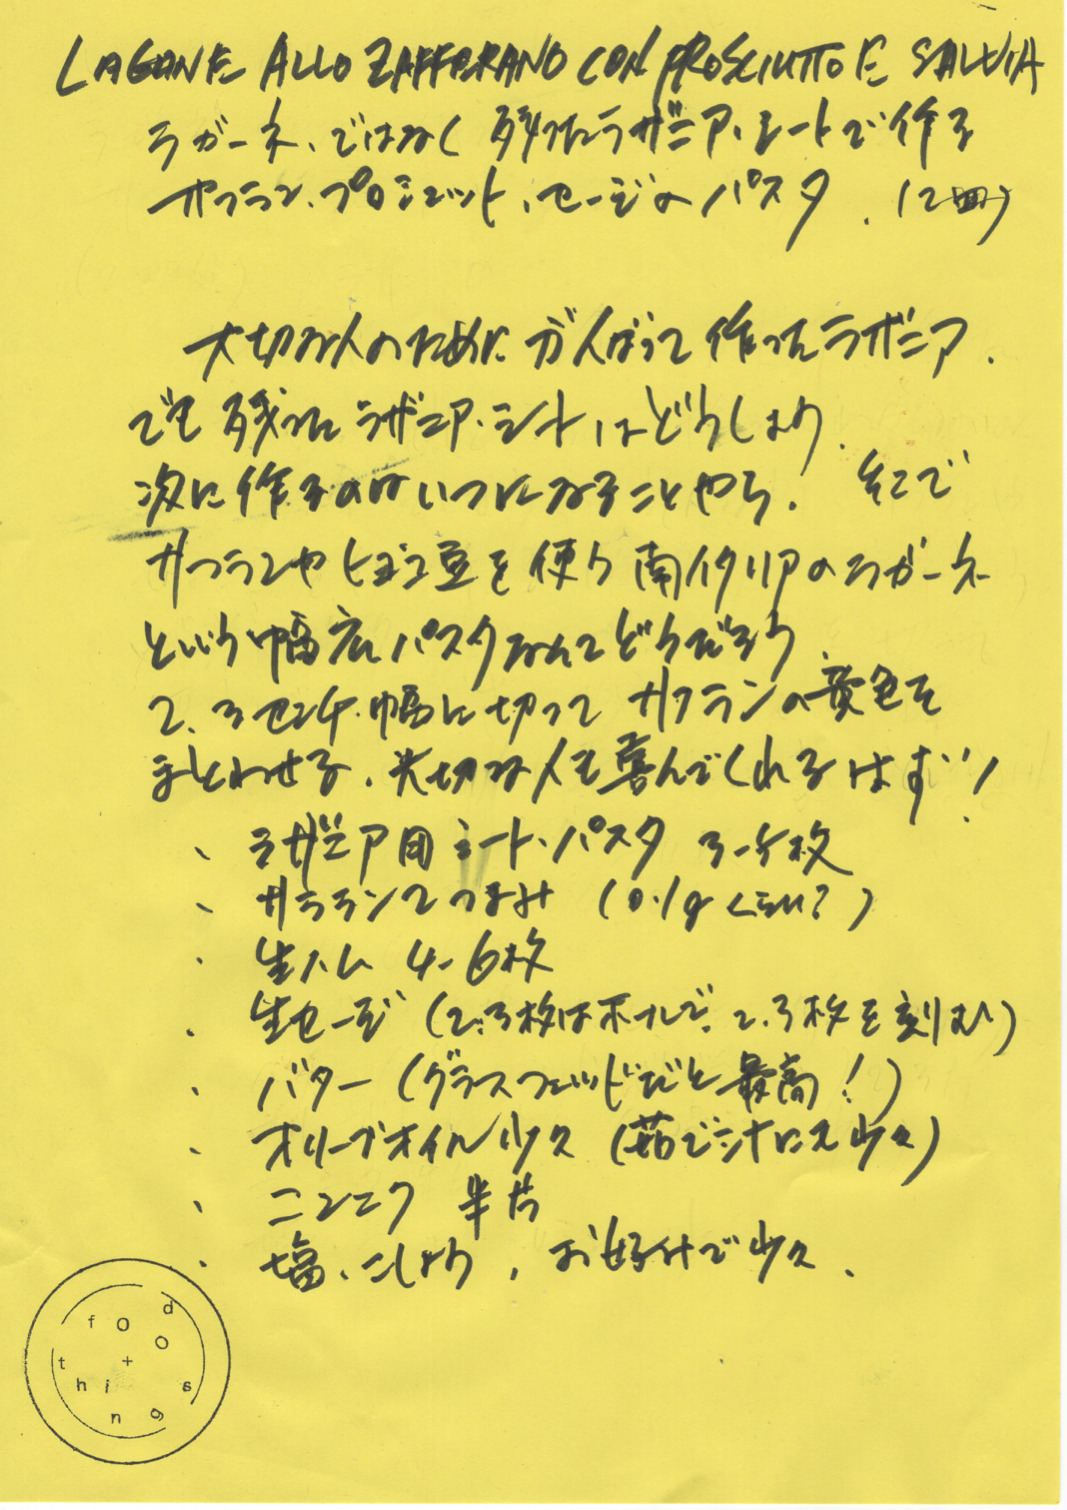 LAGANE ALLO ZAFFERANO CON PROSCIUTTO E SALVIA
ラガーネ、ではなく 残ったラザニア・シートで作る
サフラン、プロシュット、セージのパスタ、(2皿)
大切な人のために がんばって作ったラザニア、
でも残ったラザニア・シートはどうしよう、
次に作るのはいつになることやら! そこで
サフランやヒヨコ豆を使う南イタリアのラガーネ
という幅広パスタなんてどうだろう、
2、3センチ幅に切って サフランの黄色を
まとわせる、大切な人も喜んでくれるはず!
、ラザニア用シート・パスタ 3-4枚
、サフラン2つまみ (0.1gくらい?)
・生ハム 4-6枚
・生セージ (2、3枚はホールで、2、3枚を刻む)
、バター (グラスフェッドだと最高!)
、オリーブオイル少々 (茹でシオにも少々)
、ニンニク 半片
・塩、こしょう、お好みで少々、
food
+
things